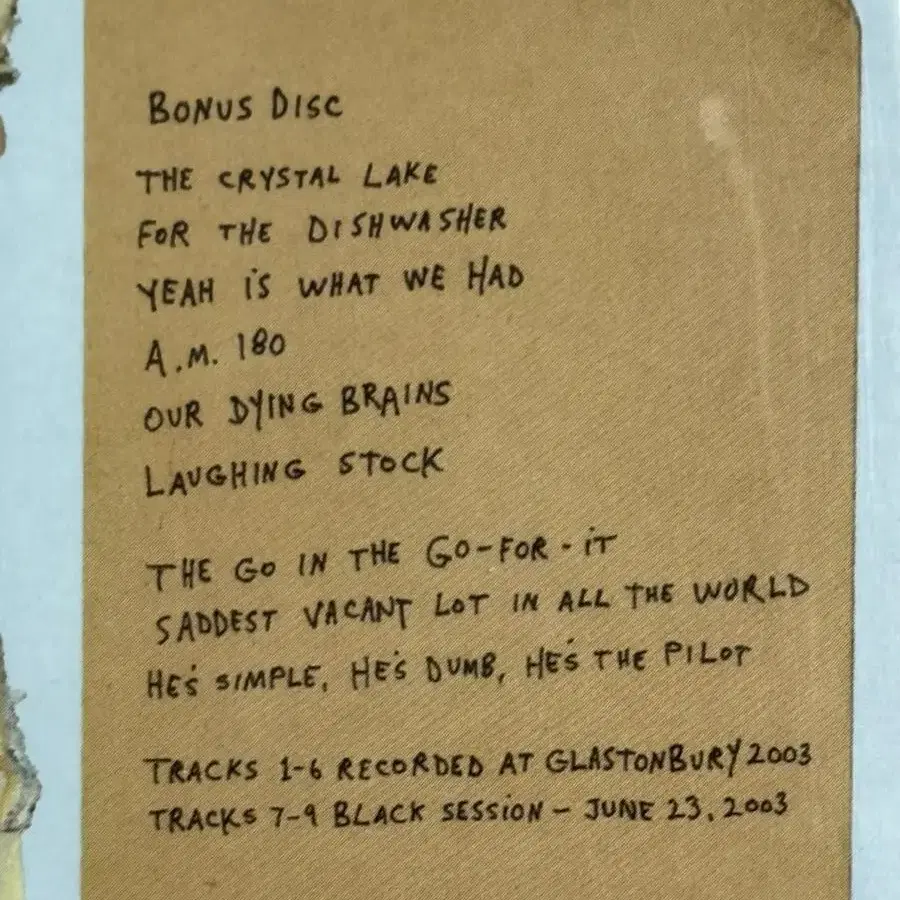 BONUS DISC
THE CRYSTAL LAKE
FOR THE DISHWASHER
YEAH IS WHAT WE HAD
A.M. 180
OUR DYING BRAINS
LAUGHING STOCK
THE GO IN THE GO-FOR-IT
SADDEST VACANT LOT IN ALL THE WORLD
HE'S SIMPLE, HE'S DUMB, HE'S THE PILOT
TRACKS 1-6 RECORDED AT GLASTONBURY 2003
TRACKS 7-9 BLACK SESSION – JUNE 23, 2003